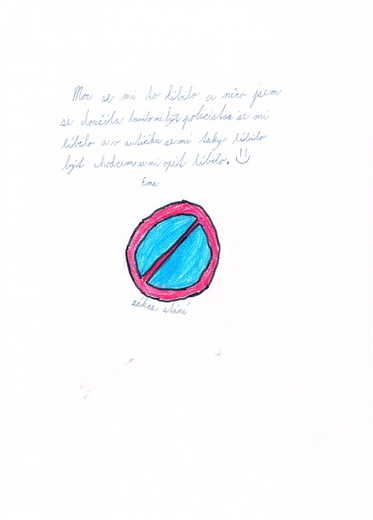 Moc se mi to líbilo a něco jsem
se doučila být policistou se mi
líbilo a v autíčku se mi taky líbilo
být chodcem se mi opět líbilo.
Ema
zákaz stání